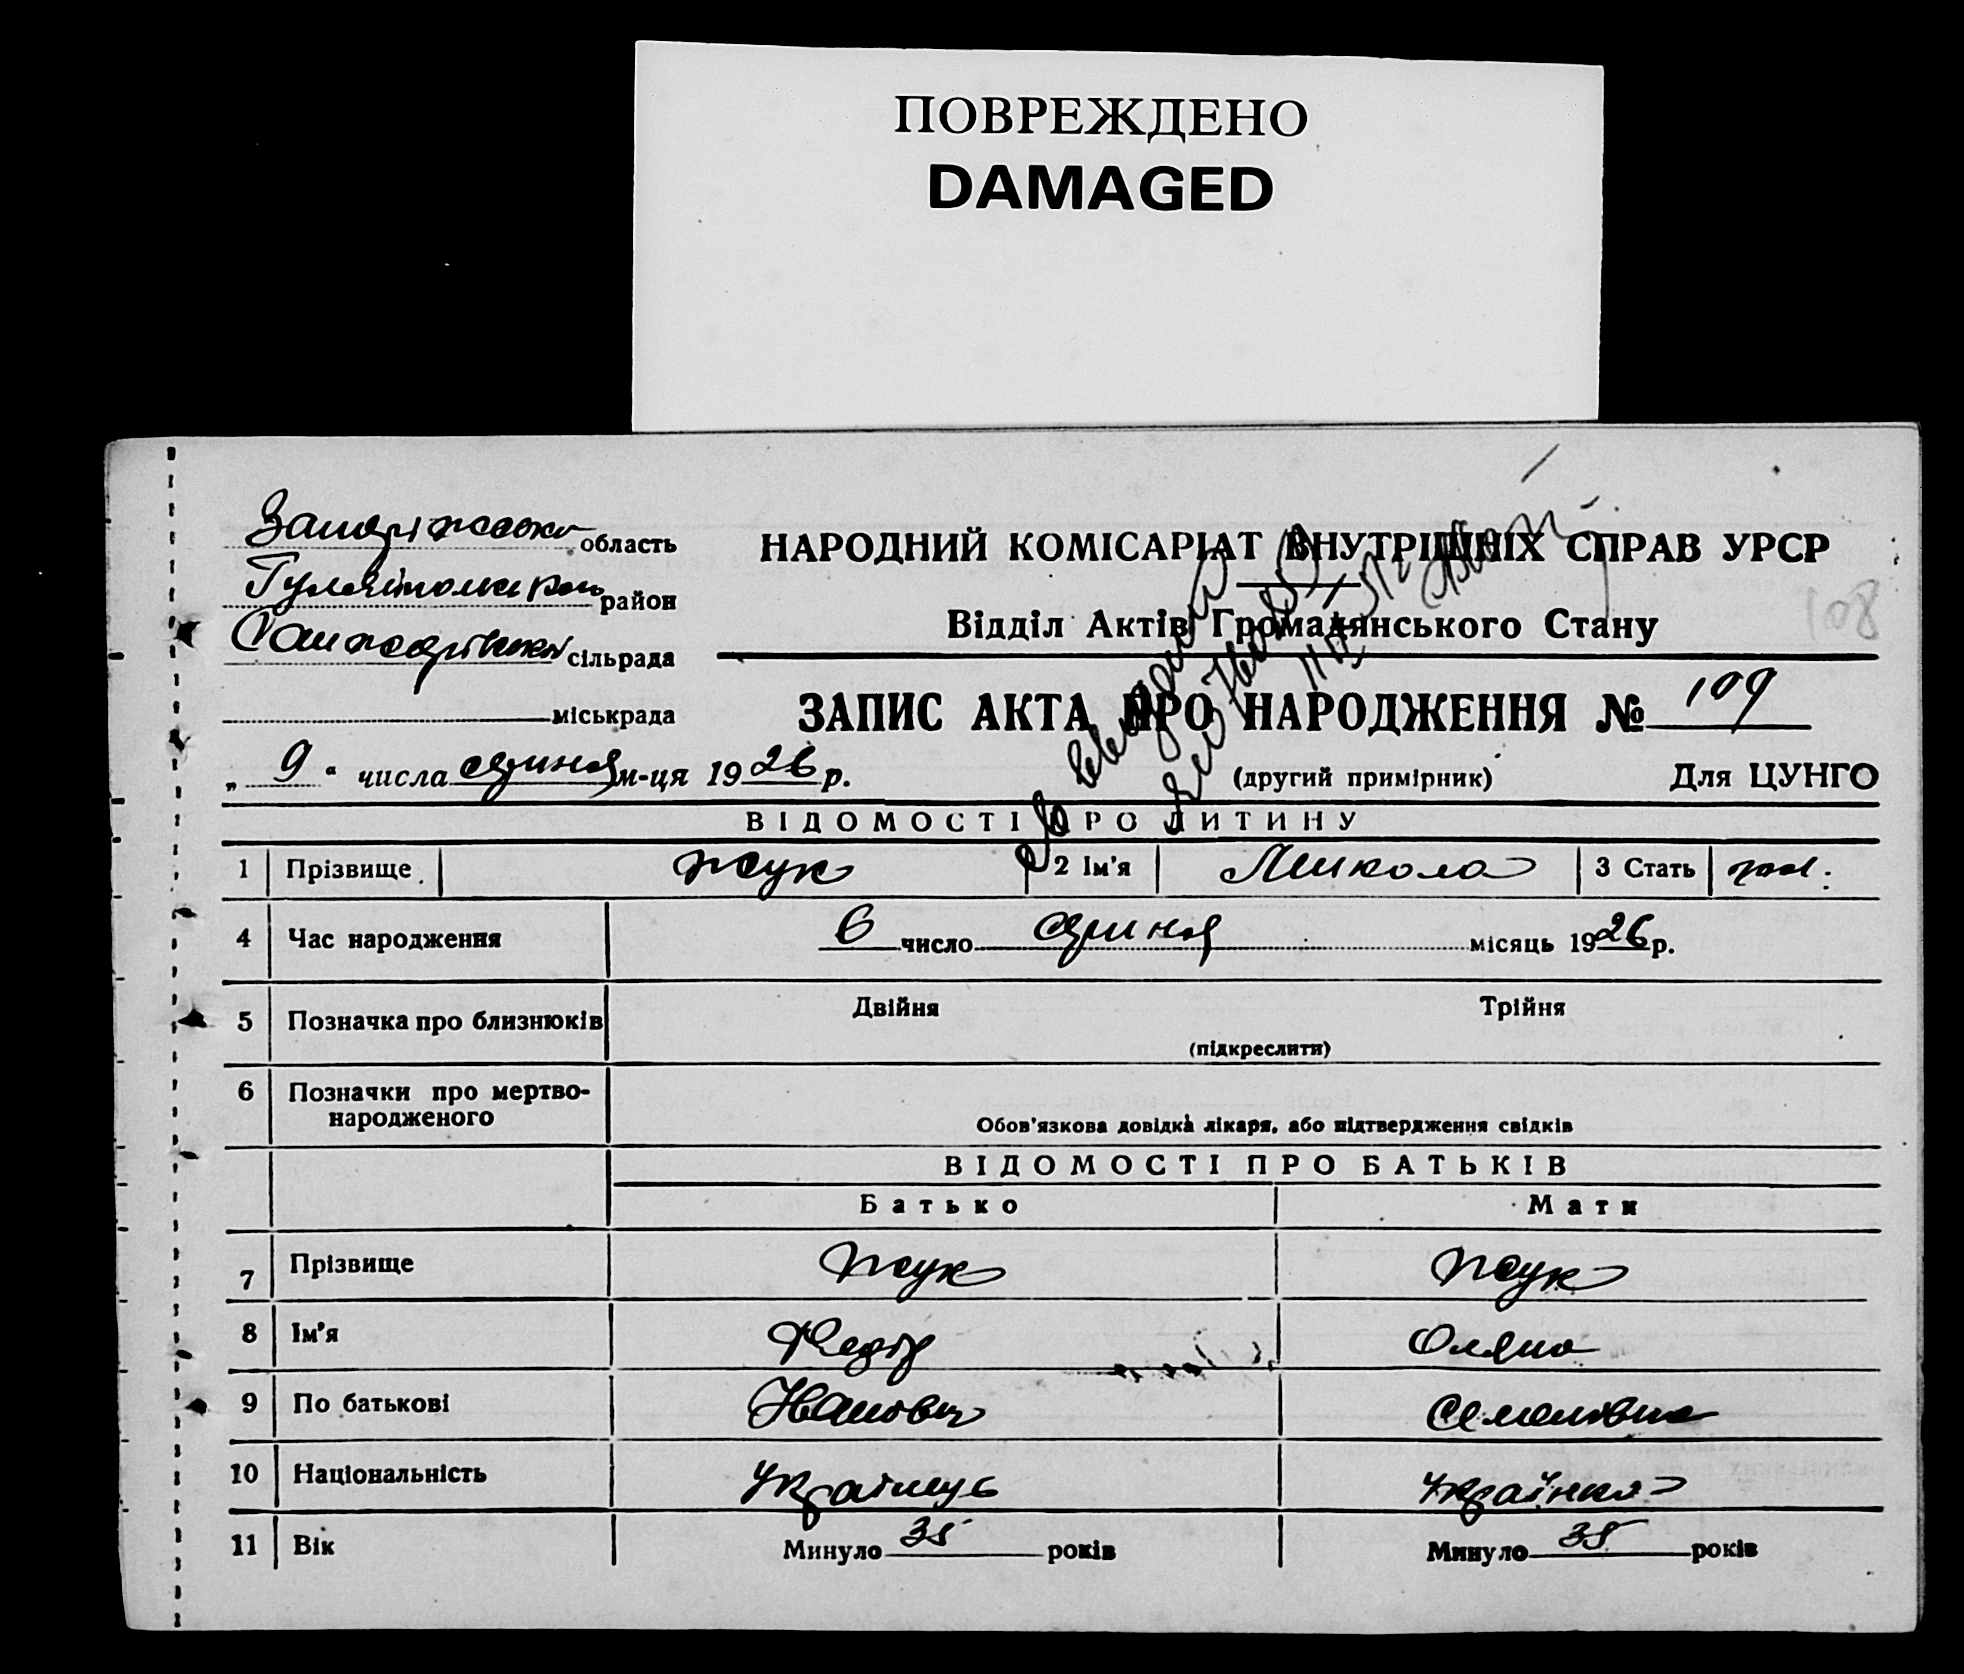 ПОВРЕЖДЕНО
DAMAGED
область
НАРОДНИЙ КОМІСАРІАТ ВНУТРІШНІХ СПРАВ УРСР
район
Відділ Актів Громадянського Стану
108
сільрада
міськрада
ЗАПИС АКТА ПРО НАРОДЖЕННЯ № 109
„ 9 “ числа серпня м-ця 1926 р.
(другий примірник)
Для ЦУНГО
ВІДОМОСТІ ПРО ДИТИНУ
1 Прізвище Жук 2 Ім'я Микола 3 Стать
4 Час народження 6 число серпня місяць 1926 р.
5 Позначка про близнюків Двійня Трійня
(підкреслити)
6 Позначки про мертво-
народженого
Обов'язкова довідка лікаря, або підтвердження свідків
ВІДОМОСТІ ПРО БАТЬКІВ
Батько Мати
7 Прізвище Жук Жук
8 Ім'я Федір
9 По батькові Іванович Семенівна
10 Національність Українець Українка
11 Вік Минуло 35 років Минуло 35 років